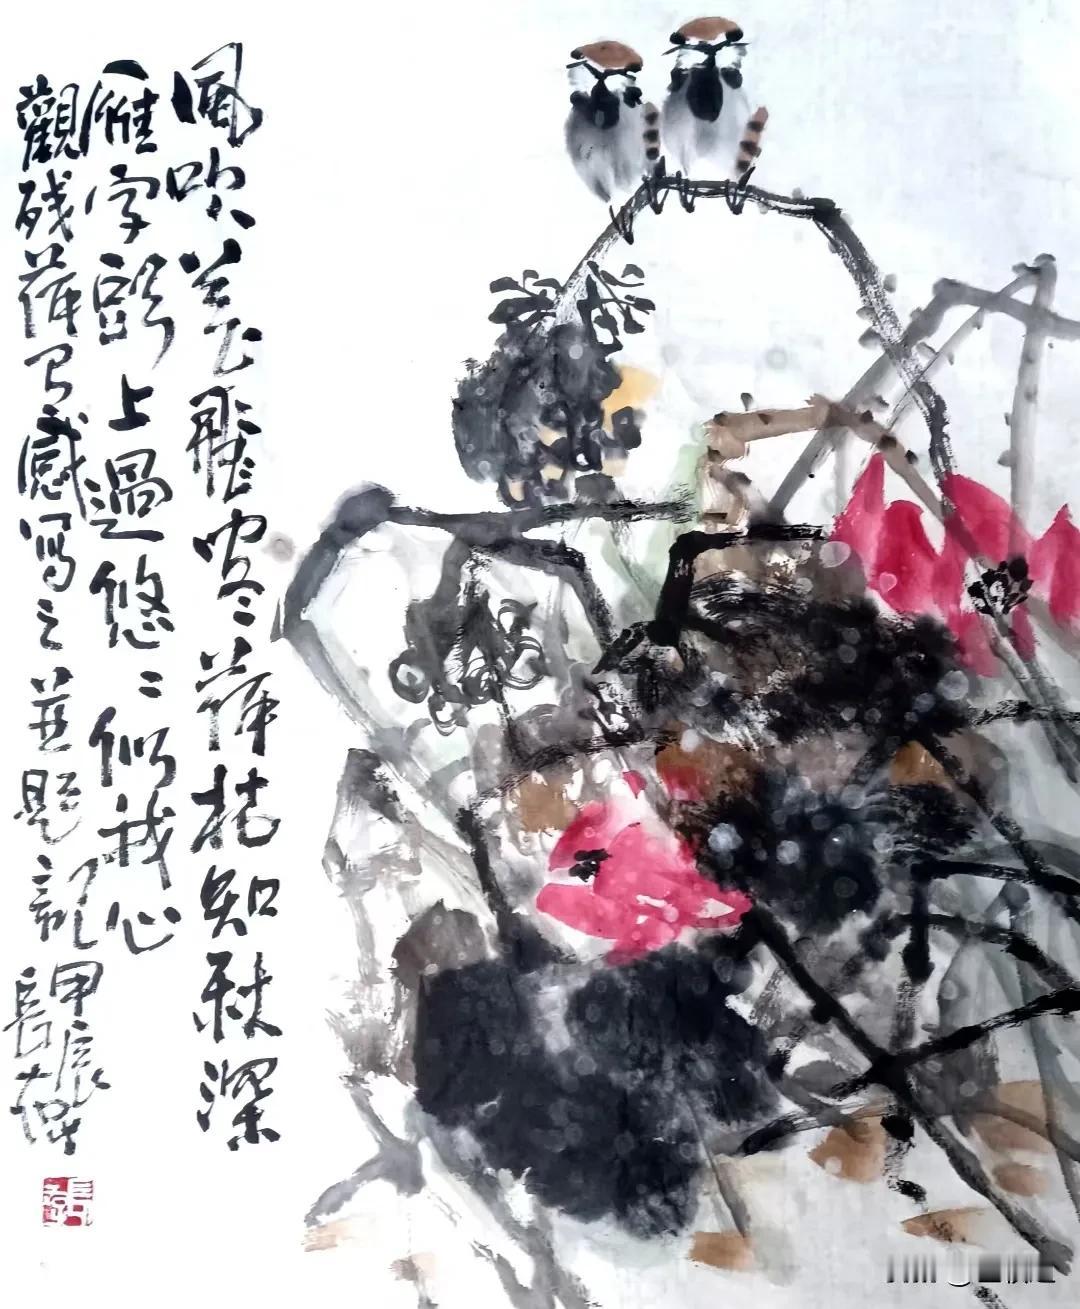 風吹芦飛宏荷枯知秋深
雁字頭上過悠〻似我心
觀残荷有感寫之並題記甲辰
長